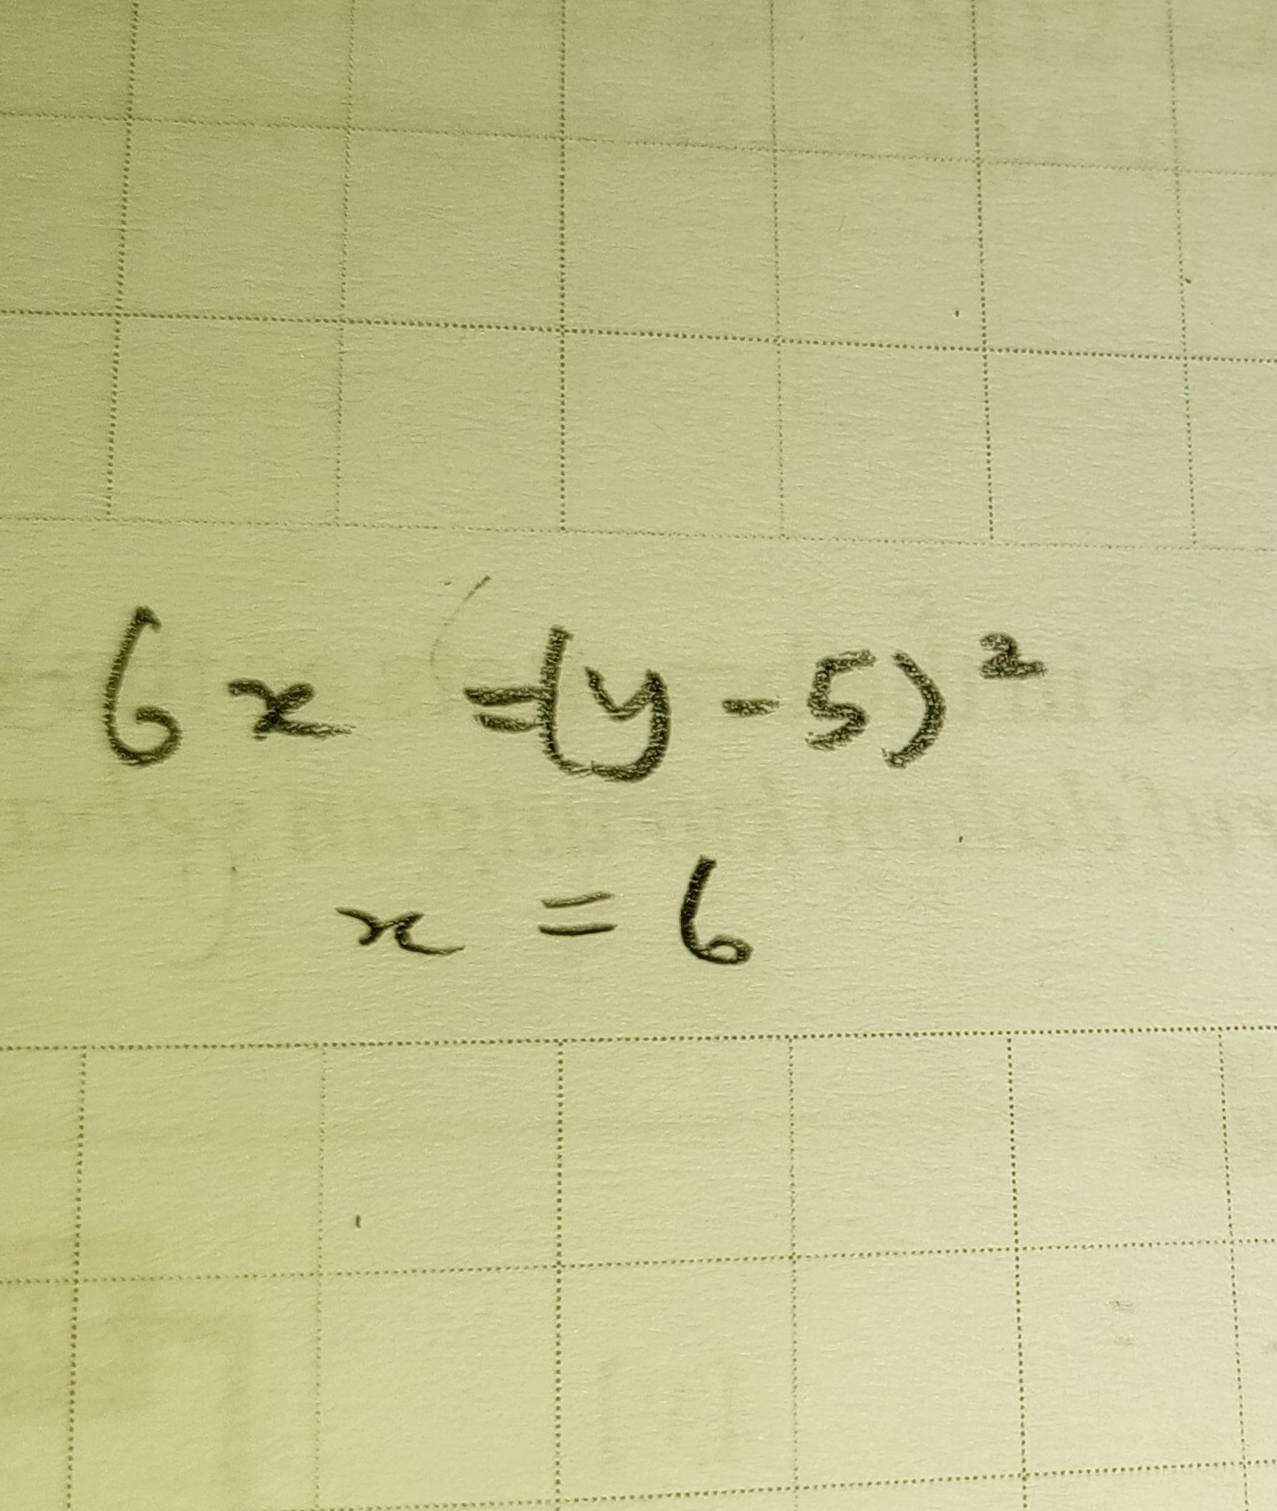 6x = (y - 5)²
x = 6